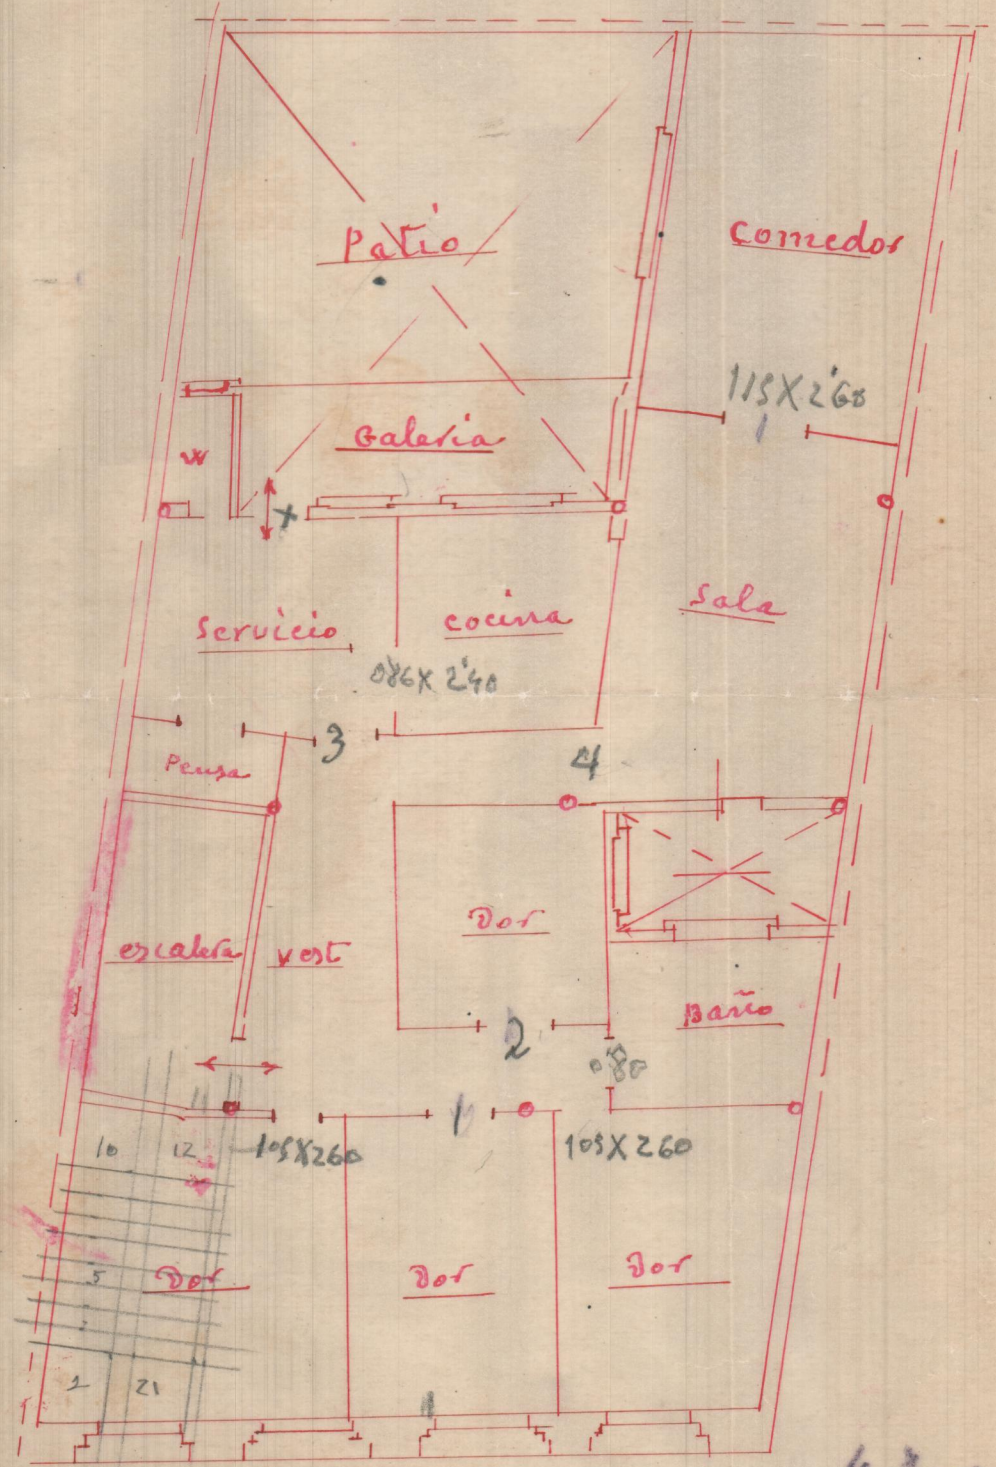 Patio
Comedor
115X2'60
1
Galeria
W
X
Servicio
cocina
Sala
0'86X2'40
3
4
Pensa
Dor
escalera
vest
Baño
2
0'80
1
10
12
105X260
105X260
5
Dor
Dor
Dor
1
2
21